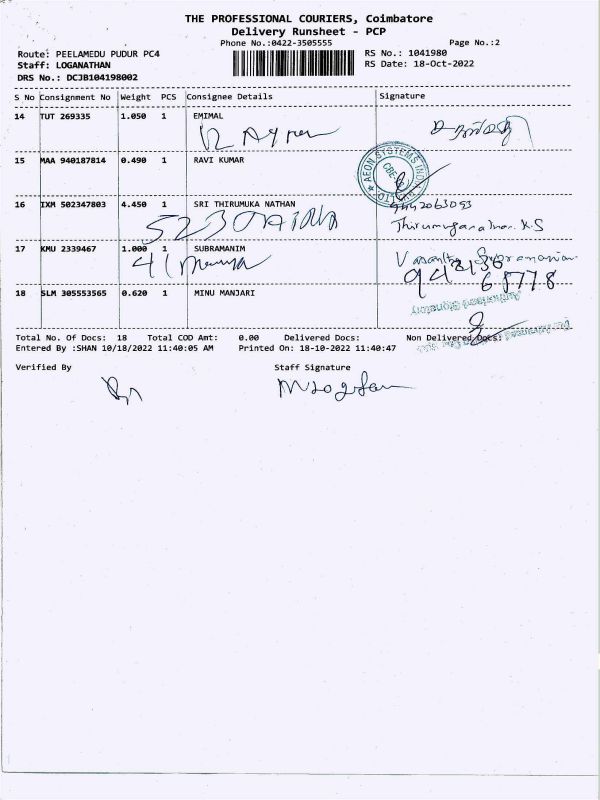 THE PROFESSIONAL COURIERS, Coimbatore
Delivery Runsheet - PCP
Phone No.:0422-3505555 Page No.:2
Route: PEELAMEDU PUDUR PC4 RS No.: 1041980
Staff: LOGANATHAN RS Date: 18-Oct-2022
DRS No.: DCJB104198002
S No Consignment No Weight PCS Consignee Details Signature
14 TUT 269335 1.050 1 EMIMAL
15 MAA 940187814 0.490 1 RAVI KUMAR
AEON SYSTEMS
CBE-4
16 IXM 502347803 4.450 1 SRI THIRUMUKA NATHAN
Thirumuganathan K.S
17 KMU 2339467 1.000 1 SUBRAMANIM
Vasantha Subramanian
18 SLM 305553565 0.620 1 MINU MANJARI
Authorised Signatory
Total No. Of Docs: 18 Total COD Amt: 0.00 Delivered Docs: Non Delivered Docs:
Entered By :SHAN 10/18/2022 11:40:05 AM Printed On: 18-10-2022 11:40:47
Verified By Staff Signature